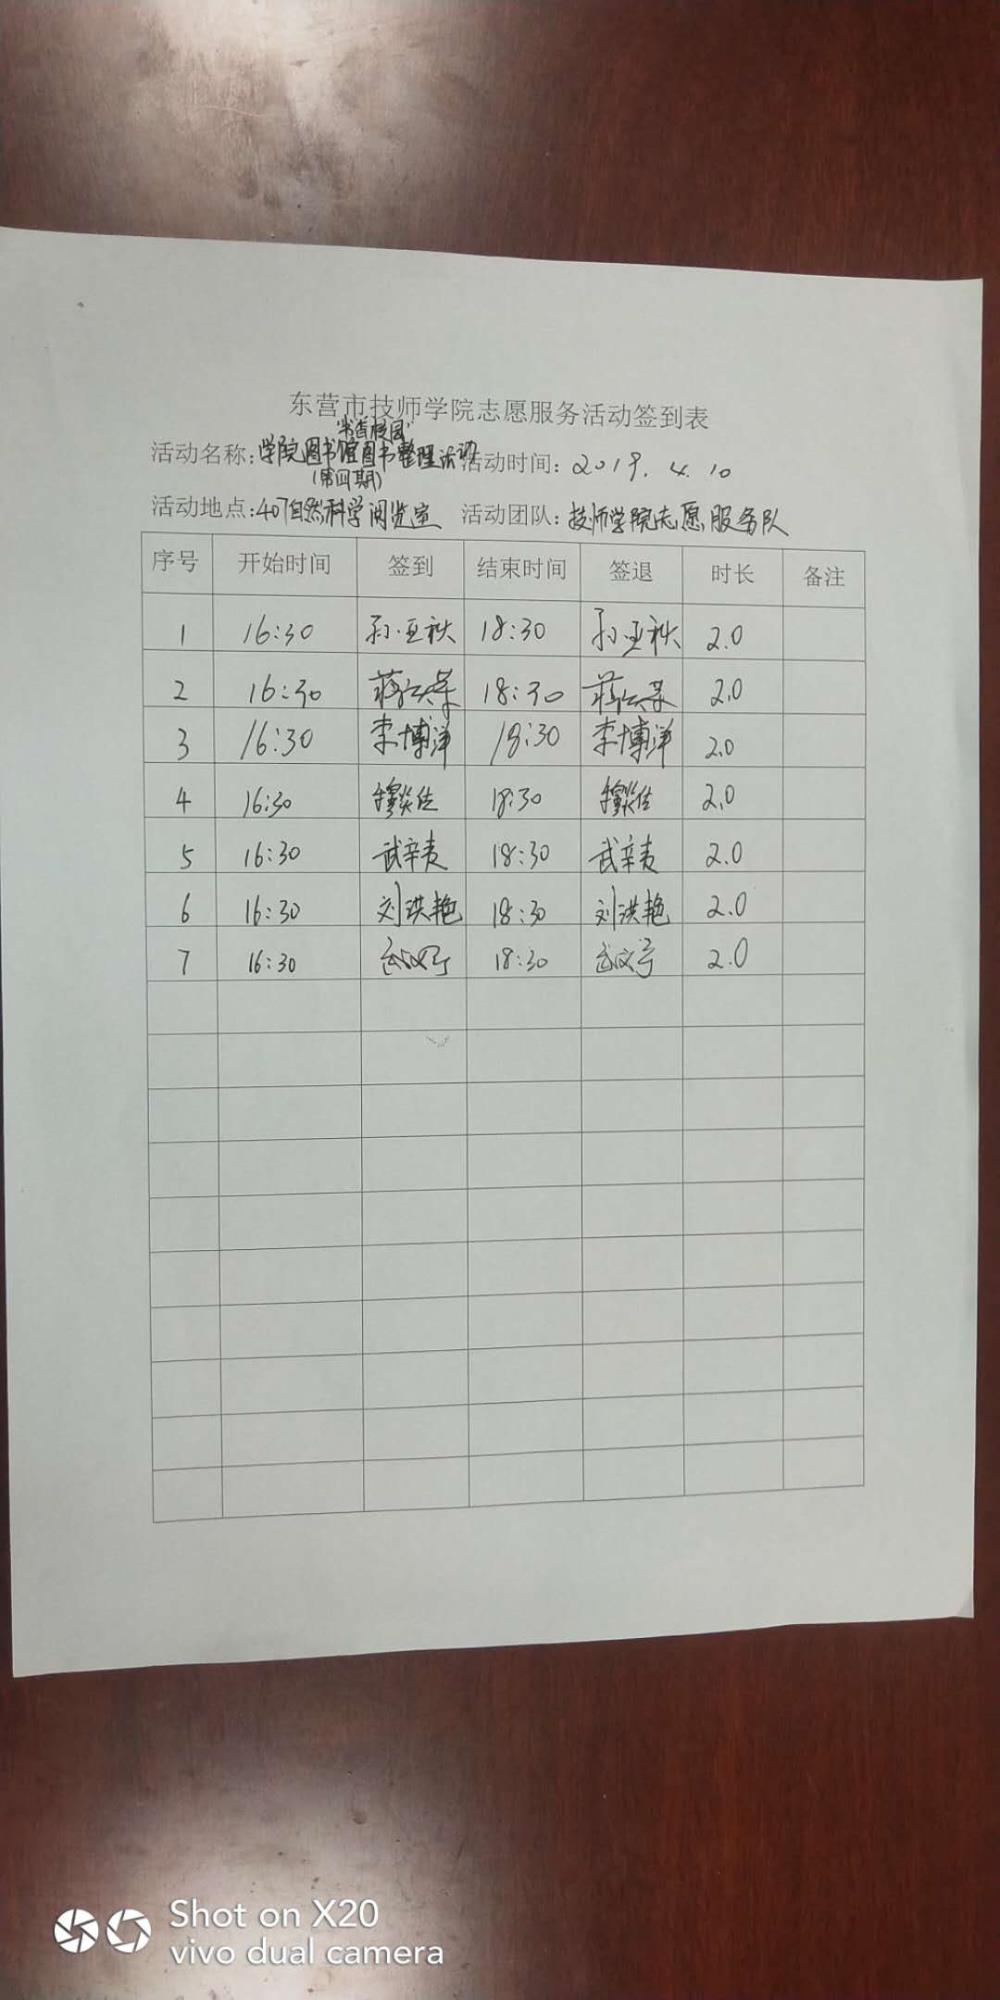 东营市技师学院志愿服务活动签到表
"书香校园"
活动名称:学院图书馆图书整理活动 活动时间:2019.4.10
(第四期)
活动地点:407自然科学阅览室 活动团队:技师学院志愿服务队
序号 开始时间 签到 结束时间 签退 时长 备注
1 16:30 孙亚秋 18:30 孙亚秋 2.0
2 16:30 18:30 2.0
3 16:30 李博洋 18:30 李博洋 2.0
4 16:30 18:30 2.0
5 16:30 18:30 2.0
6 16:30 刘洪艳 18:30 刘洪艳 2.0
7 16:30 18:30 2.0
Shot on X20
vivo dual camera